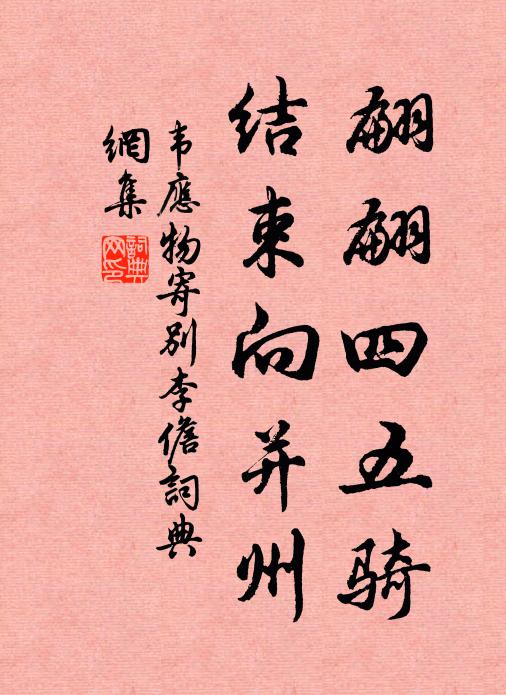 翩翩四五骑
结束向并州
韦應物寄别李儋詞典
網集
詞典
网印